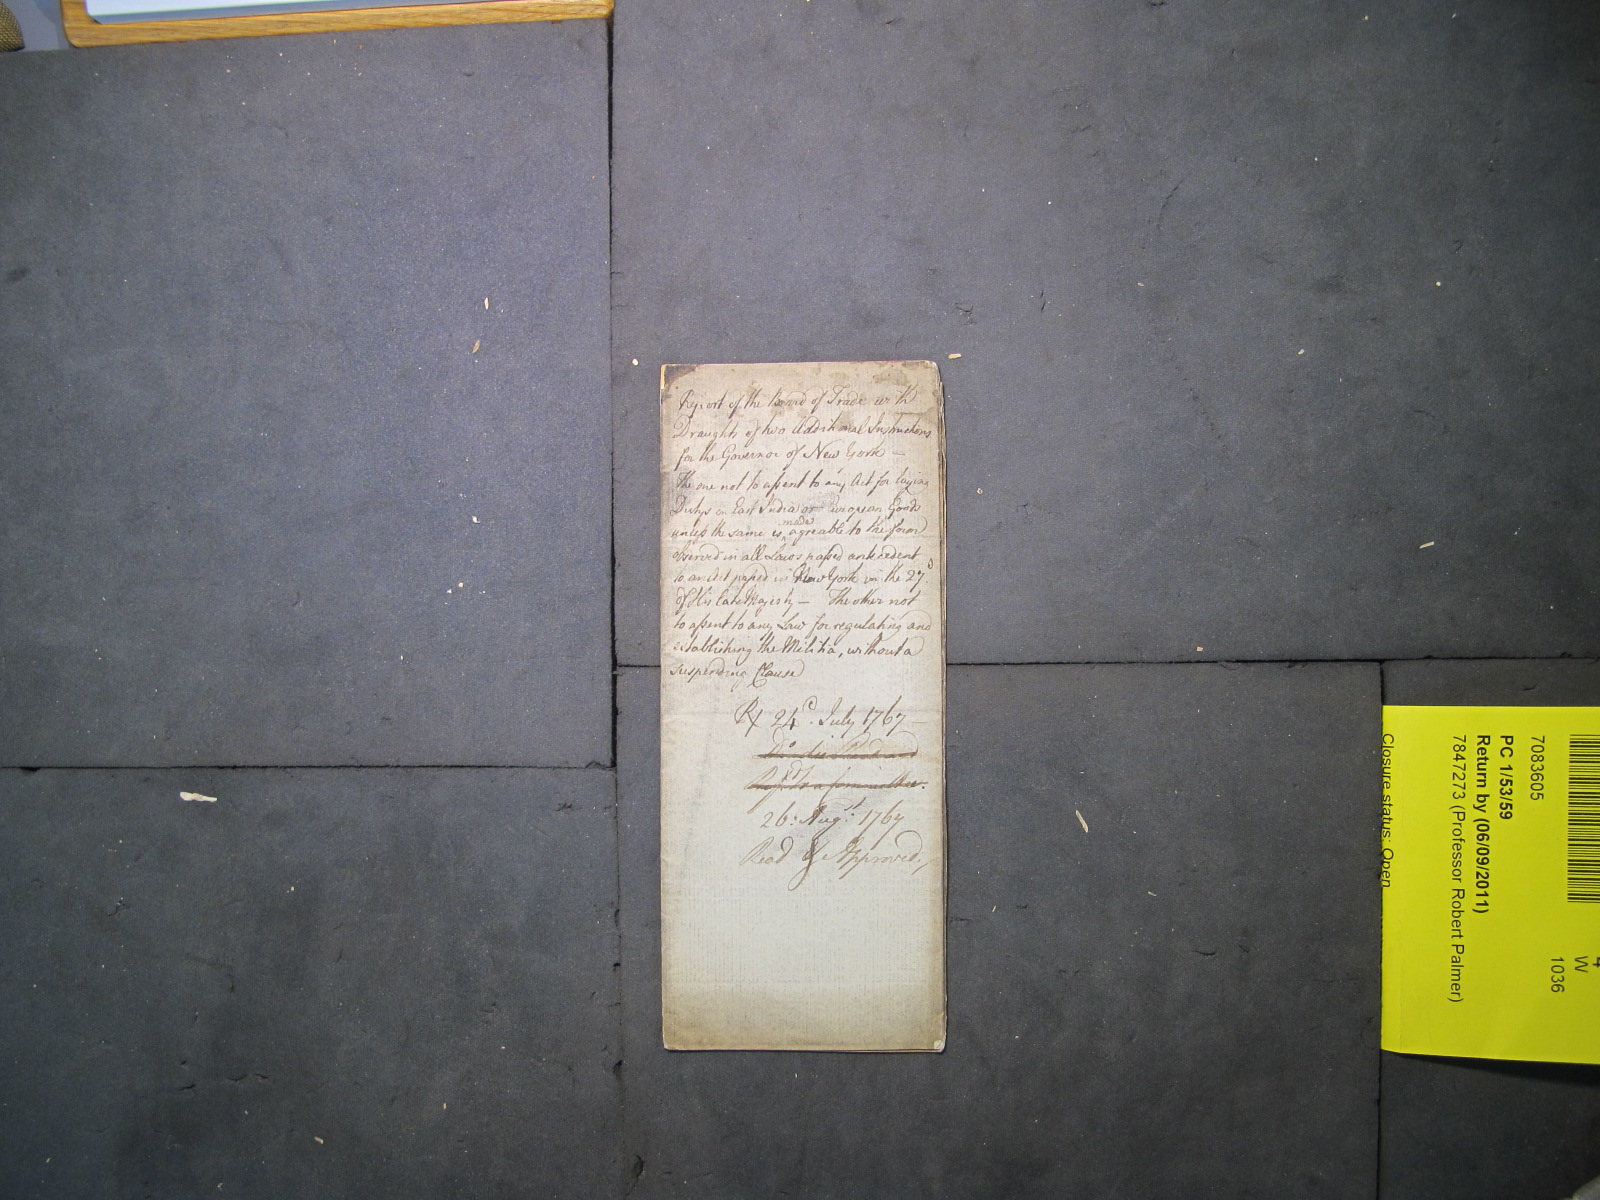 Report of the Board of Trade with
Draughts of two Additional Instructions
for the Governor of New York —
The one not to assent to any Act for laying
Dutys on East India or European Goods
unless the same is made agreable to the form
observed in all Laws passed antecedent
to an Act passed in New York in the 27.
of His late Majesty — The other not
to assent to any Law for regulating and
establishing the Militia, without a
suspending Clause
R 24. July 1767 —
26: Augst. 1767
Read & Approved.
7083605
PC 1/53/59
Return by (06/09/2011)
7847273 (Professor Robert Palmer)
Closure status: Open
4
W
1036